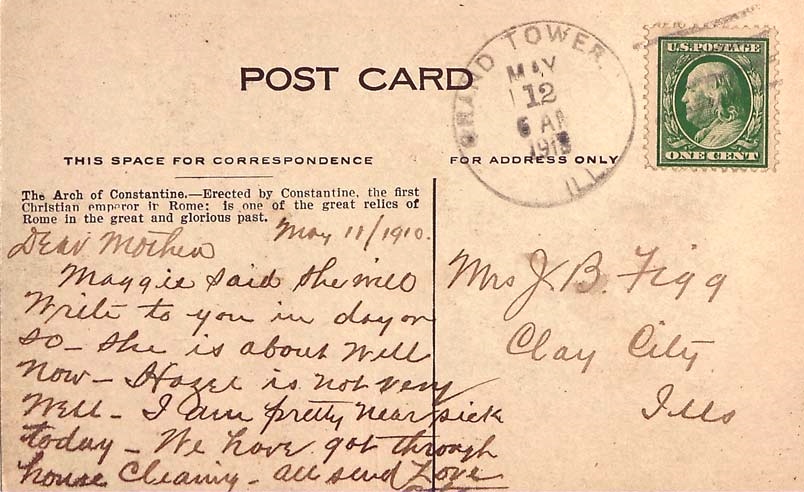 POST CARD
GRAND TOWER
MAY
12
6 AM
1910
ILL.
U.S. POSTAGE
ONE CENT
THIS SPACE FOR CORRESPONDENCE
FOR ADDRESS ONLY
The Arch of Constantine.—Erected by Constantine, the first
Christian emperor in Rome; is one of the great relics of
Rome in the great and glorious past.
May 11/1910.
Dear Mother
Maggie said she will
Write to you in day or
so— she is about Well
Now— Hazel is not very
Well— I am pretty near sick
today— We have got through
house Cleaning— all send Love
Mrs J. B. Figg
Clay City
Ills